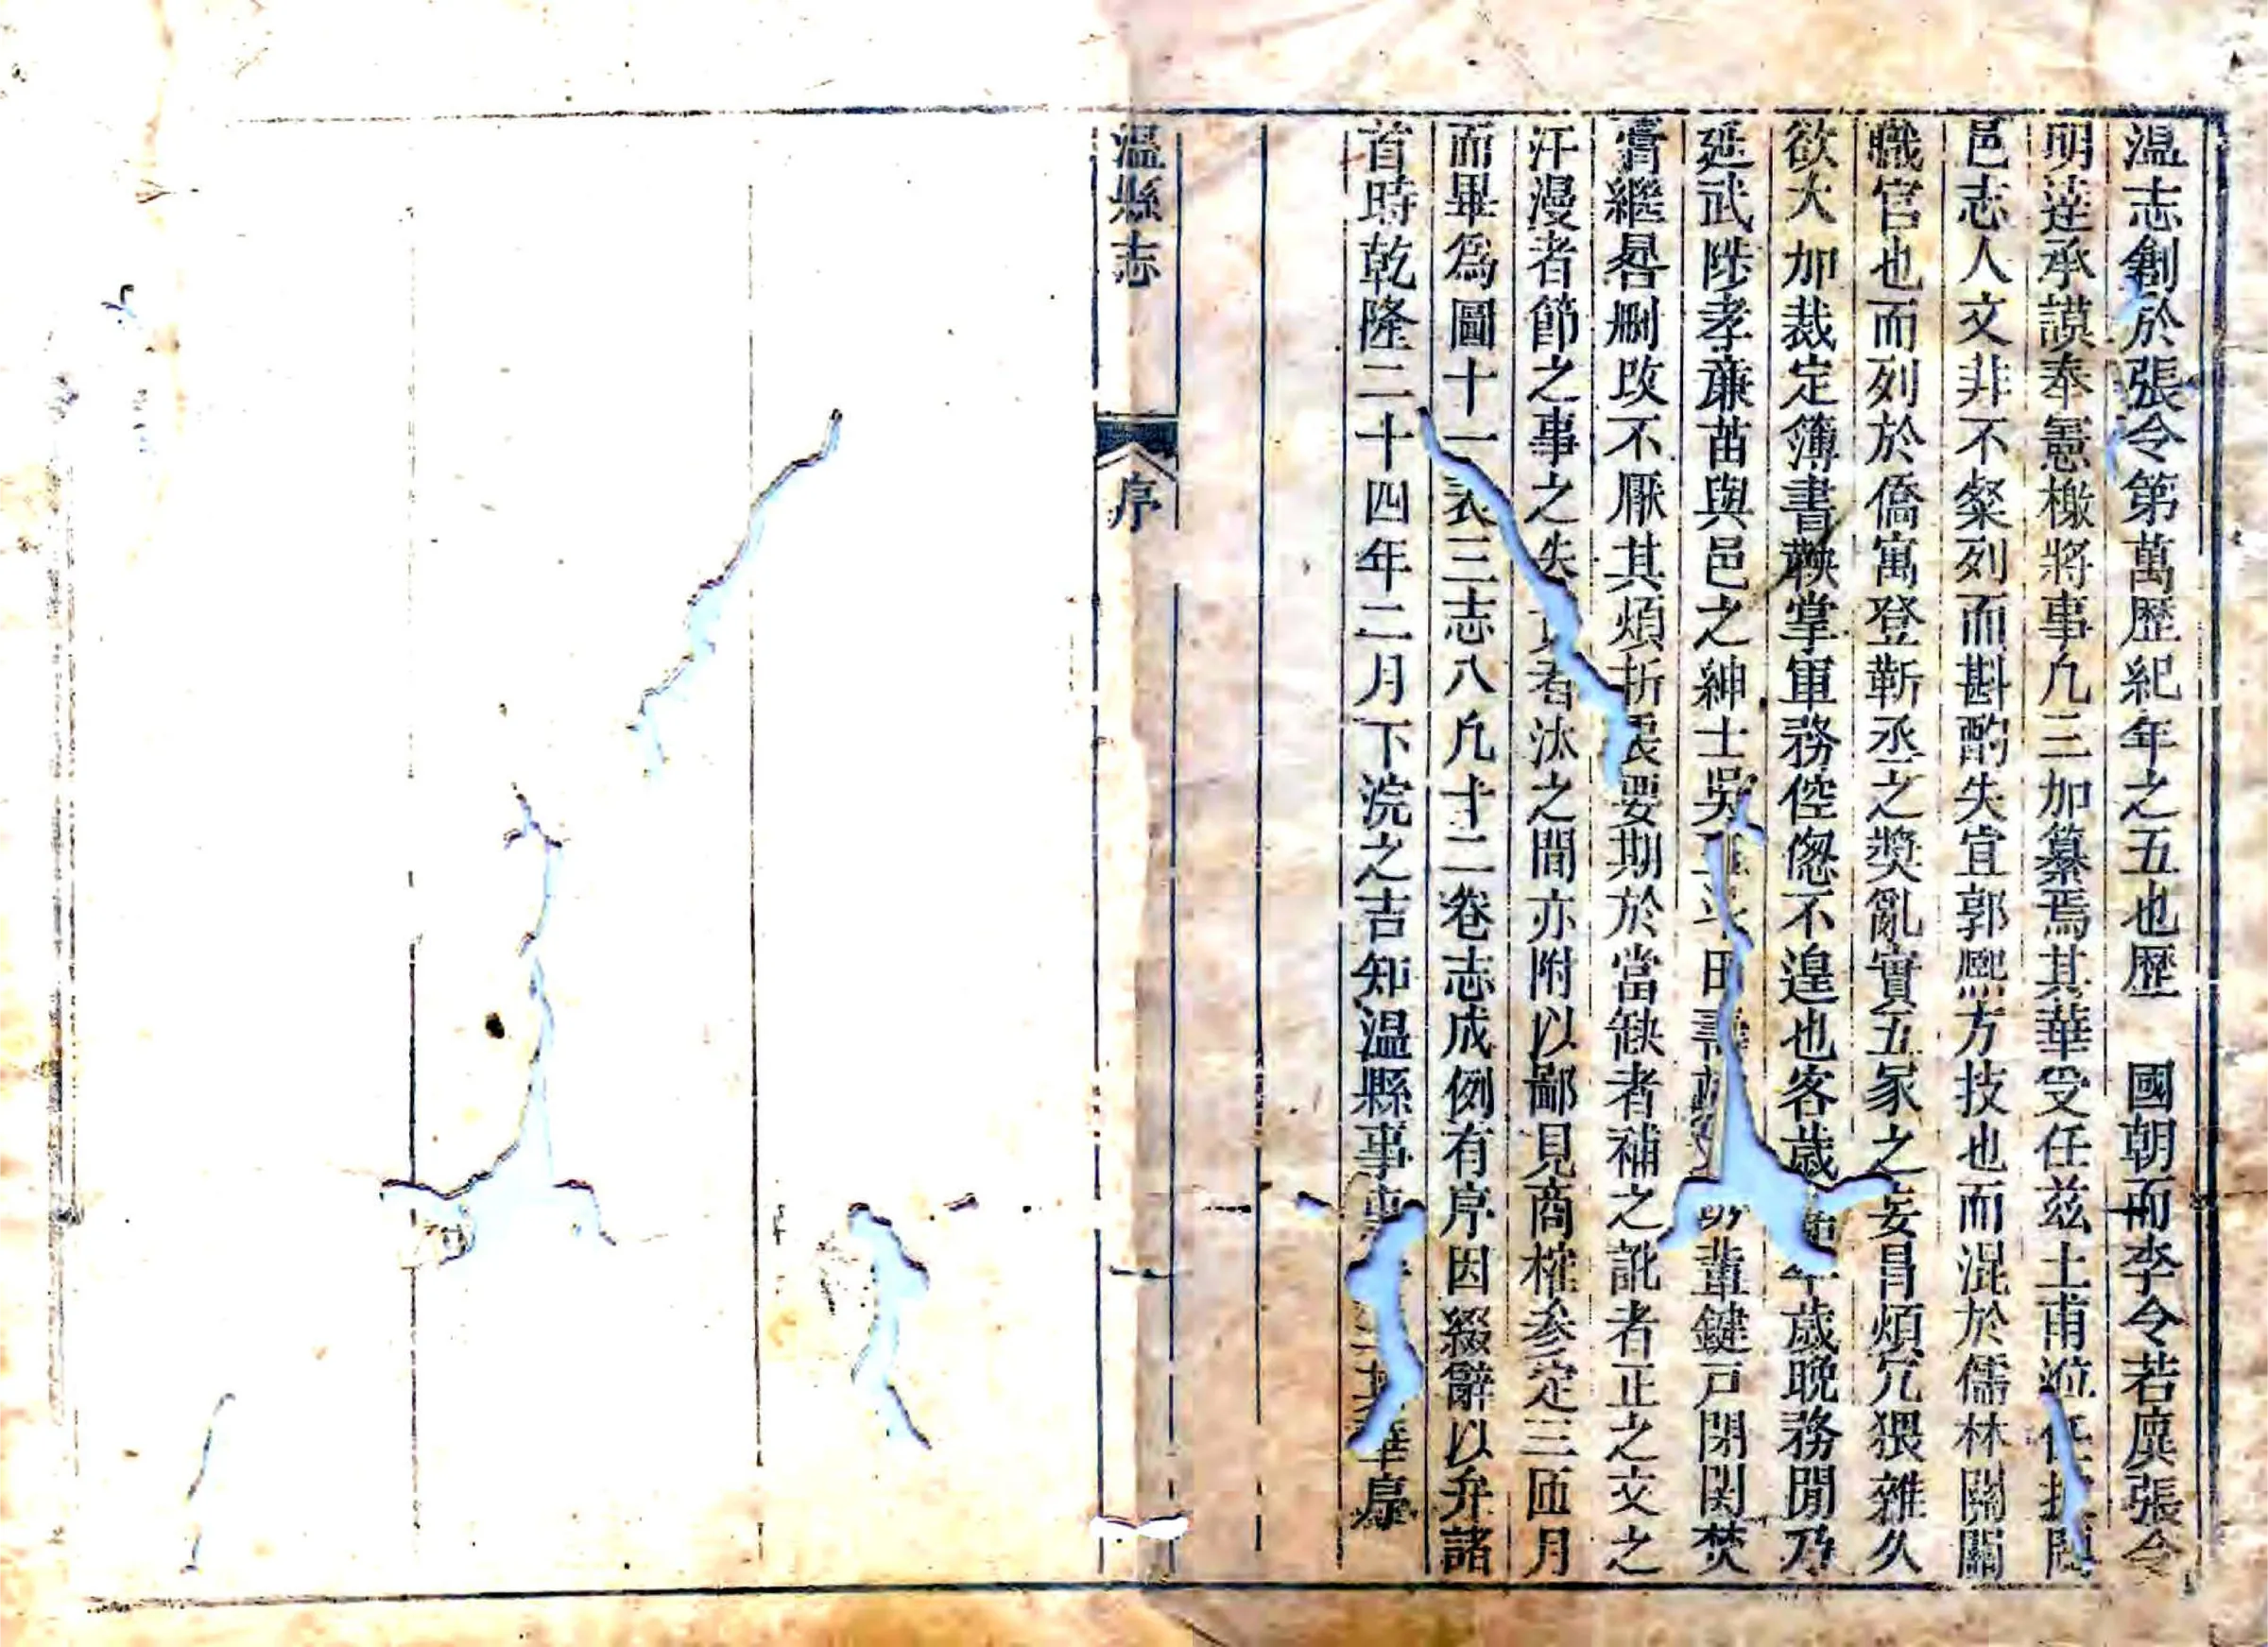 溫志創於張令第萬歷紀年之五也歷　國朝而李令若廙張令
明達承謨奉憲檄將事凡三加纂焉其華受任茲土甫涖任披閱
邑志人文非不粲列而斟酌失宜郭熙方技也而混於儒林關關
職官也而列於僑寓登靳丞之奬亂實五冢之妄冒煩冗猥雜久
欲大加裁定簿書鞅掌軍務倥傯不遑也客歲年歲晚務閒乃
延武陟孝亷苗與邑之紳士吳田壽輩鍵戸閉関焚
膏繼晷刪攺不厭其煩折衷要期於當缺者補之訛者正之文之
汗漫者節之事之失實者汰之間亦附以鄙見商榷參定三匝月
而畢為圖十一表三志八凡十二卷志成例有序因綴辭以弁諸
首時乾隆二十四年二月下浣之吉知溫縣事華序
溫縣志
序
一